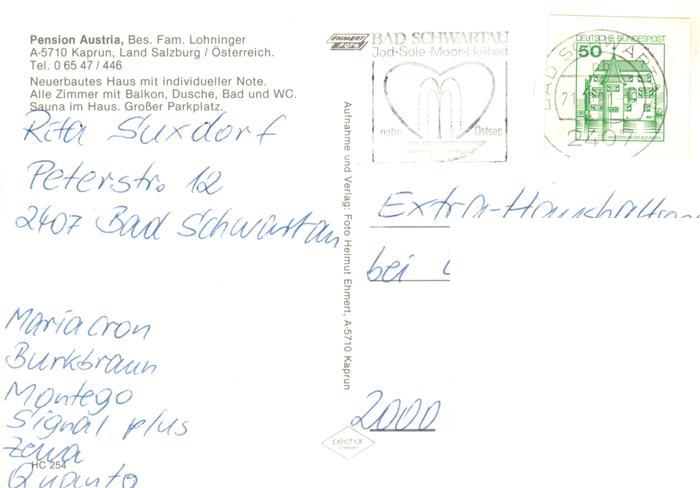 Pension Austria, Bes. Fam. Lohninger
A-5710 Kaprun, Land Salzburg / Österreich.
Tel. 0 65 47 / 446
Neuerbautes Haus mit individueller Note.
Alle Zimmer mit Balkon, Dusche, Bad und WC.
Sauna im Haus. Großer Parkplatz.
Rita Suxdorf
Peterstr. 12
2407 Bad Schwartau
Mariacron
Burkbraun
Montego
Signal plus
Zewa
HC 254
Quanto
Aufnahme und Verlag: Foto Helmut Ehmert, A-5710 Kaprun
EHMERT
FOTO
BAD SCHWARTAU
Jod-Sole-Moor-Heilbad
nahe Ostsee
DEUTSCHE BUNDESPOST
50
BAD SCHWARTA
21
2407
bei
2000